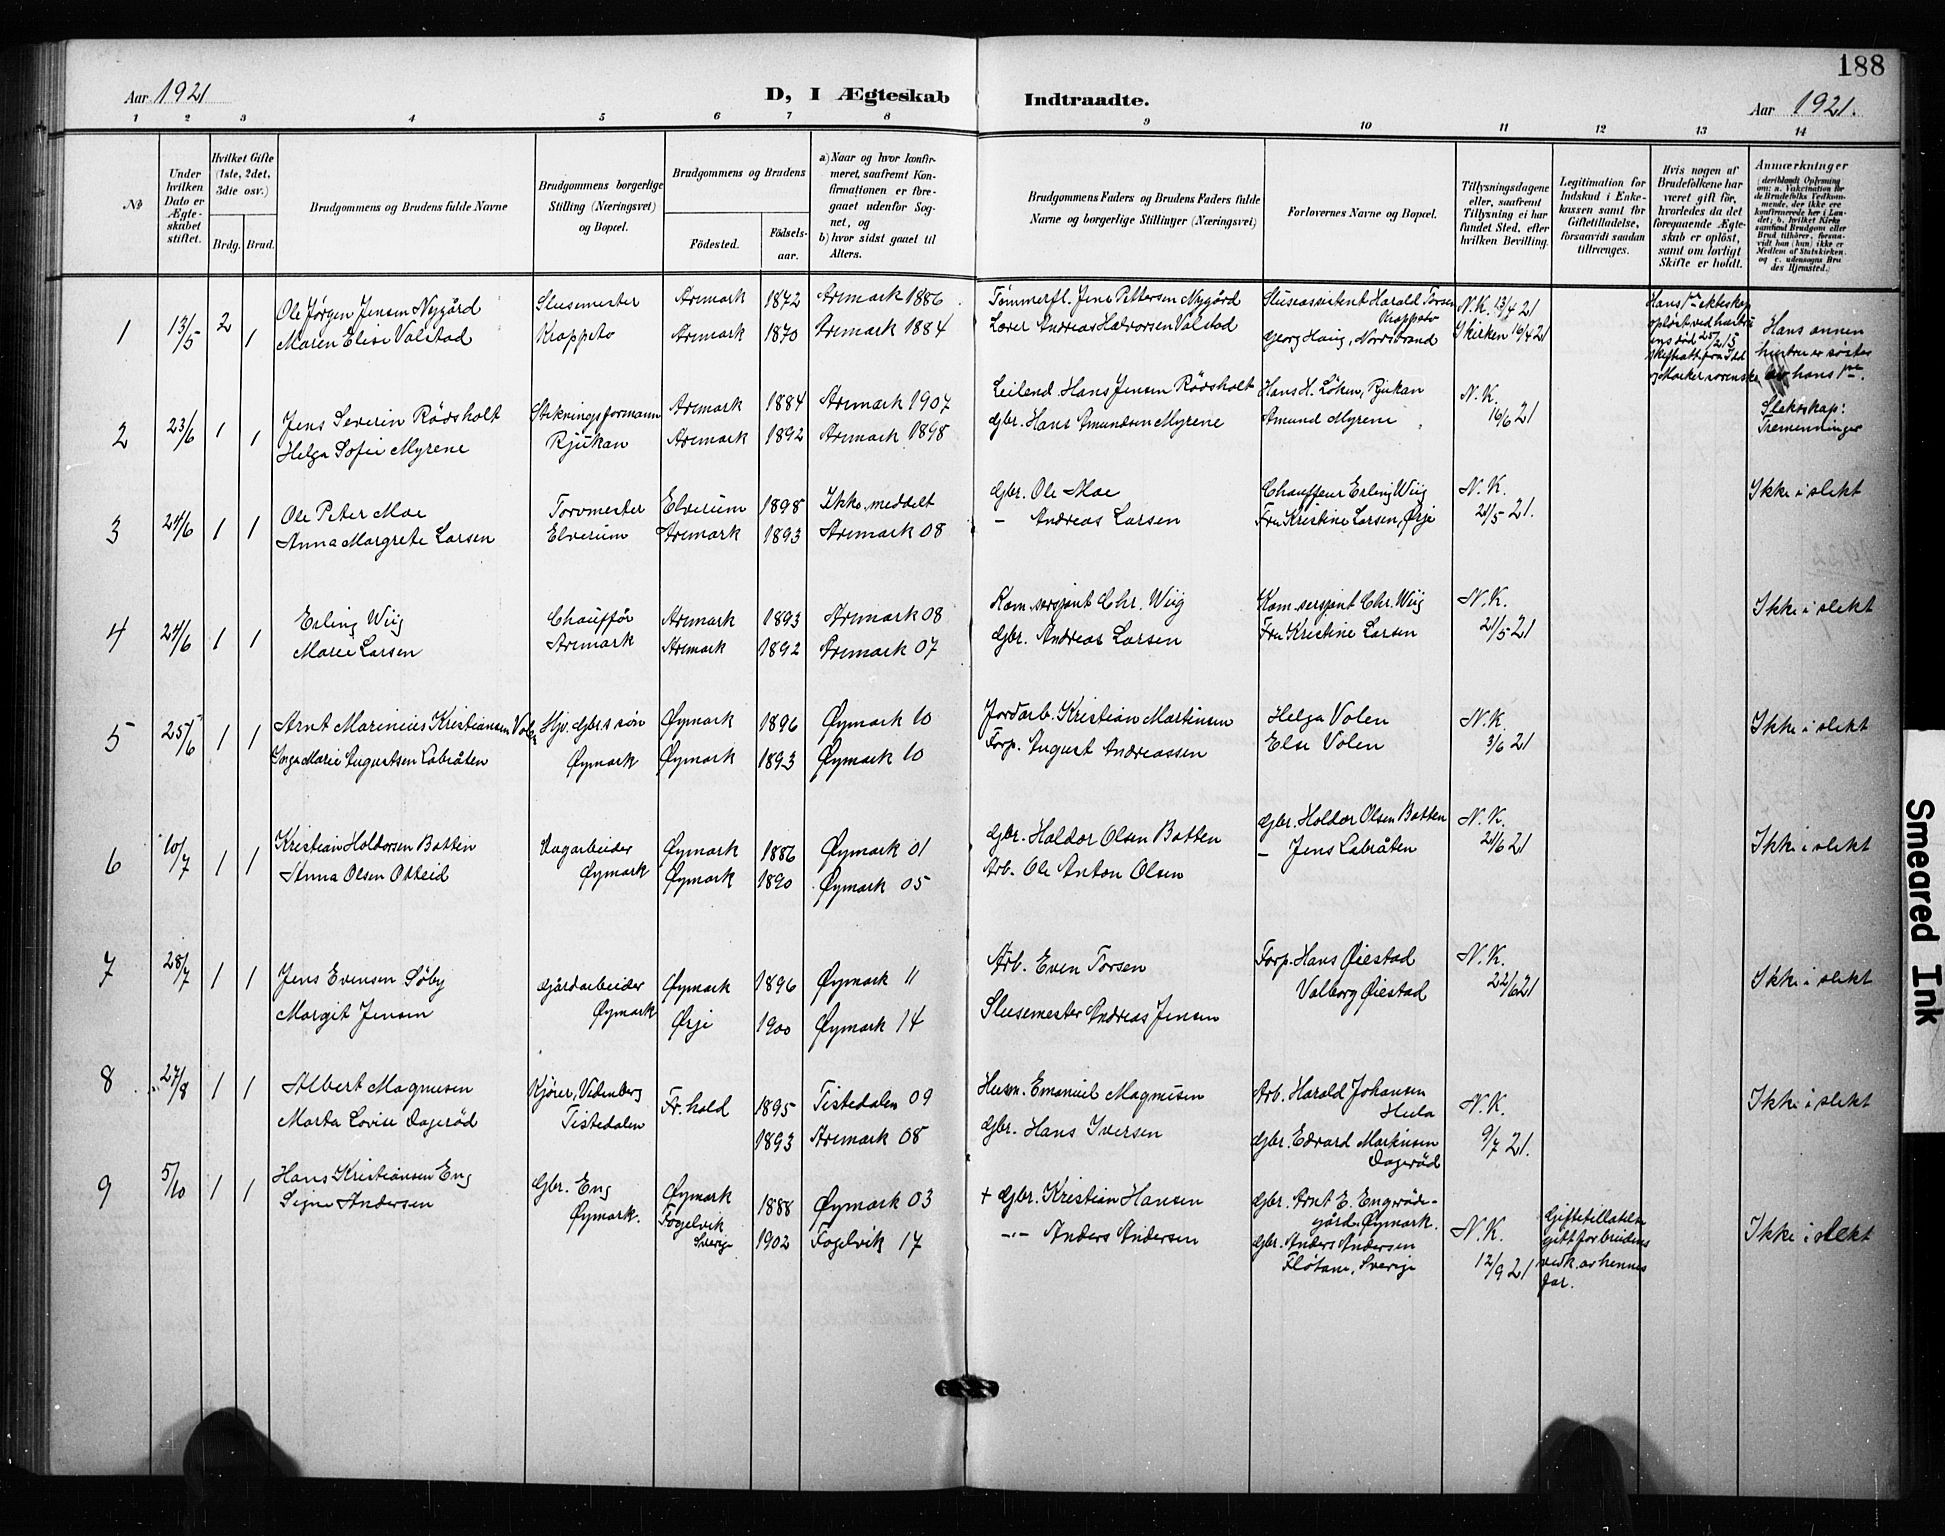 188
Aar 1921
D, I Ægteskab Indtraadte.
Aar 1921.
1 2 3 4 5 6 7 8 9 10 11 12 13 14
No
Under hvilken Dato er Ægteskabet stiftet.
Hvilket Gifte (1ste, 2det, 3die osv.)
Brdg. Brud.
Brudgommens og Brudens fulde Navne
Brudgommens borgerlige Stilling (Næringsvei) og Bopæl.
Brudgommens og Brudens
Födested.
Födselsaar.
a) Naar og hvor konfirmeret, saafremt Konfirmationen er foregaaet udenfor Sognet, og
b) hvor sidst gaaet til Alters.
Brudgommens Faders og Brudens Faders fulde Navne og borgerlige Stillinger (Næringsvei)
Forlovernes Navne og Bopæl.
Tillysningsdagene eller, saafremt Tillysning ei har fundet Sted, efter hvilken Bevilling.
Legitimation for Indskud i Enkekassen samt for Giftetilladelse, forsaavidt saadan tiltrænges.
Hvis nogen af Brudefolkene har været gift før, hvorledes da det foregaaende Ægteskab er oplöst, samt om lovligt Skifte er holdt.
Anmærkninger
1 13/5 2 1
Ole Jørgen Jensen Nygård
Maren Elise Valstad
Slusemester
Krappeto
Aremark 1872 Aremark 1886
Aremark 1870 Aremark 1884
Tømmerfl. Jens Pettersen Nygård
Lærer Andreas Halvorsen Valstad
Sluseassistent Harald Torsen
Krappeto
Georg Haig, Nordstrand
N.K. 13/4 21
I kirken 16/4 21
Hans annen
hustru er søster
av hans 1ste.
2 23/6 1 1
Jens Severin Rødsholt
Helga Sofie Myrene
Stikningsformann
Rjukan
Aremark 1884 Aremark 1907
Aremark 1892 Aremark 1898
Leilend. Hans Jensen Rødsholt
Gbr. Hans Amundsen Myrene
Hans H. Löken, Rjukan
Amund Myrene
N.K.
16/6 21
Slektskap:
Tremenninger
3 24/6 1 1
Ole Peter Moe
Anna Margrete Larsen
Torvmester
Elverum
Elverum 1898 Ikke meddelt
Aremark 1893 Aremark 08
Gbr. Ole Moe
— Andreas Larsen
Chauffeur Erling Wiig
Fru Kristine Larsen, Ørje
N.K.
21/5 21.
Ikke i slekt
4 24/6 1 1
Erling Wiig
Marie Larsen
Chauffør
Aremark
Aremark 1893 Aremark 08
Aremark 1892 Aremark 07
Kom. sersjant Chr. Wiig
Gbr. Andreas Larsen
Kom. sersjant Chr. Wiig
Fru Kristine Larsen
N.K.
21/5 21
Ikke i slekt
5 25/6 1 1
Arnt Marinius Kristiansen Volen
Inga Marie Augustsen Labråten
Hjv. Gbrs søn
Øymark
Øymark 1896 Øymark 10
Øymark 1893 Øymark 10
Jordarb. Kristian Martinsen
Forp. August Andreassen
Helga Volen
Else Volen
N.K.
3/6 21
Ikke i slekt
6 10/7 1 1
Kristian Holdorsen Botten
Anna Olsen Otteid
Dagarbeider
Øymark
Øymark 1886 Øymark 01
Øymark 1890 Øymark 05
Gbr. Haldor Olsen Botten
Arb. Ole Anton Olsen
Gbr. Holdor Olsen Botten
— Jens Labråten
N.K.
21/6 21
Ikke i slekt
7 28/7 1 1
Jens Evensen Söby
Margit Jensen
Gårdarbeider
Øymark
Øymark 1896 Øymark 11
Ørje 1900 Øymark 14
Arb. Even Torsen
Slusemester Andreas Jensen
Forp. Hans Øiestad
Valborg Øiestad
N.K.
22/6 21
Ikke i slekt
8 27/8 1 1
Albert Magnusen
Marta Lovise Dagerød
Kjører, Vedenberg
Tistedalen
Fr.hald 1895 Tistedalen 09
1893 Aremark 08
Husm. Emanuel Magnusen
Gbr. Hans Iversen
Arb. Harald Johansen
Gbr. Edvard Markusen
Dagerød
N.K.
9/7 21.
Ikke i slekt
9 5/10 1 1
Hans Kristiansen Eng
Signe Andersen
Gbr. Eng
Øymark.
Øymark 1888 Øymark 03
Fogelvik
Sverige 1902 Fogelvik 17
+ Gbr. Kristian Hansen
—"— Anders Andersen
Gbr. Arnt E. Engerødegård, Øymark.
Gbr. Anders Andersen
Flötane, Sverige
N.K.
12/9 21
Giftetillatelse
gitt for brudens
vedk. av hennes
far.
Ikke i slekt
Smeared Ink